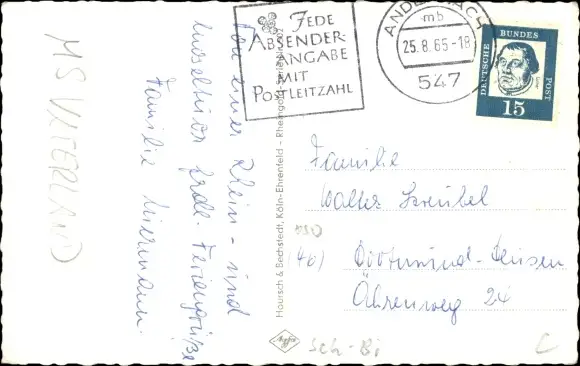 MS VATERLAND
Von einer Rhein- und
Moseltour herzl. Feriengrüße
Familie
JEDE
ABSENDER-
ANGABE
MIT
POSTLEITZAHL
ANDERNACH
mb
25.8.65-18
547
DEUTSCHE BUNDES POST
15
Hausch & Bechstedt, Köln-Ehrenfeld - Rheingold
Familie
Walter
(46) Dortmund-
Ährenweg 24
Agfa
Sch-Bi
C